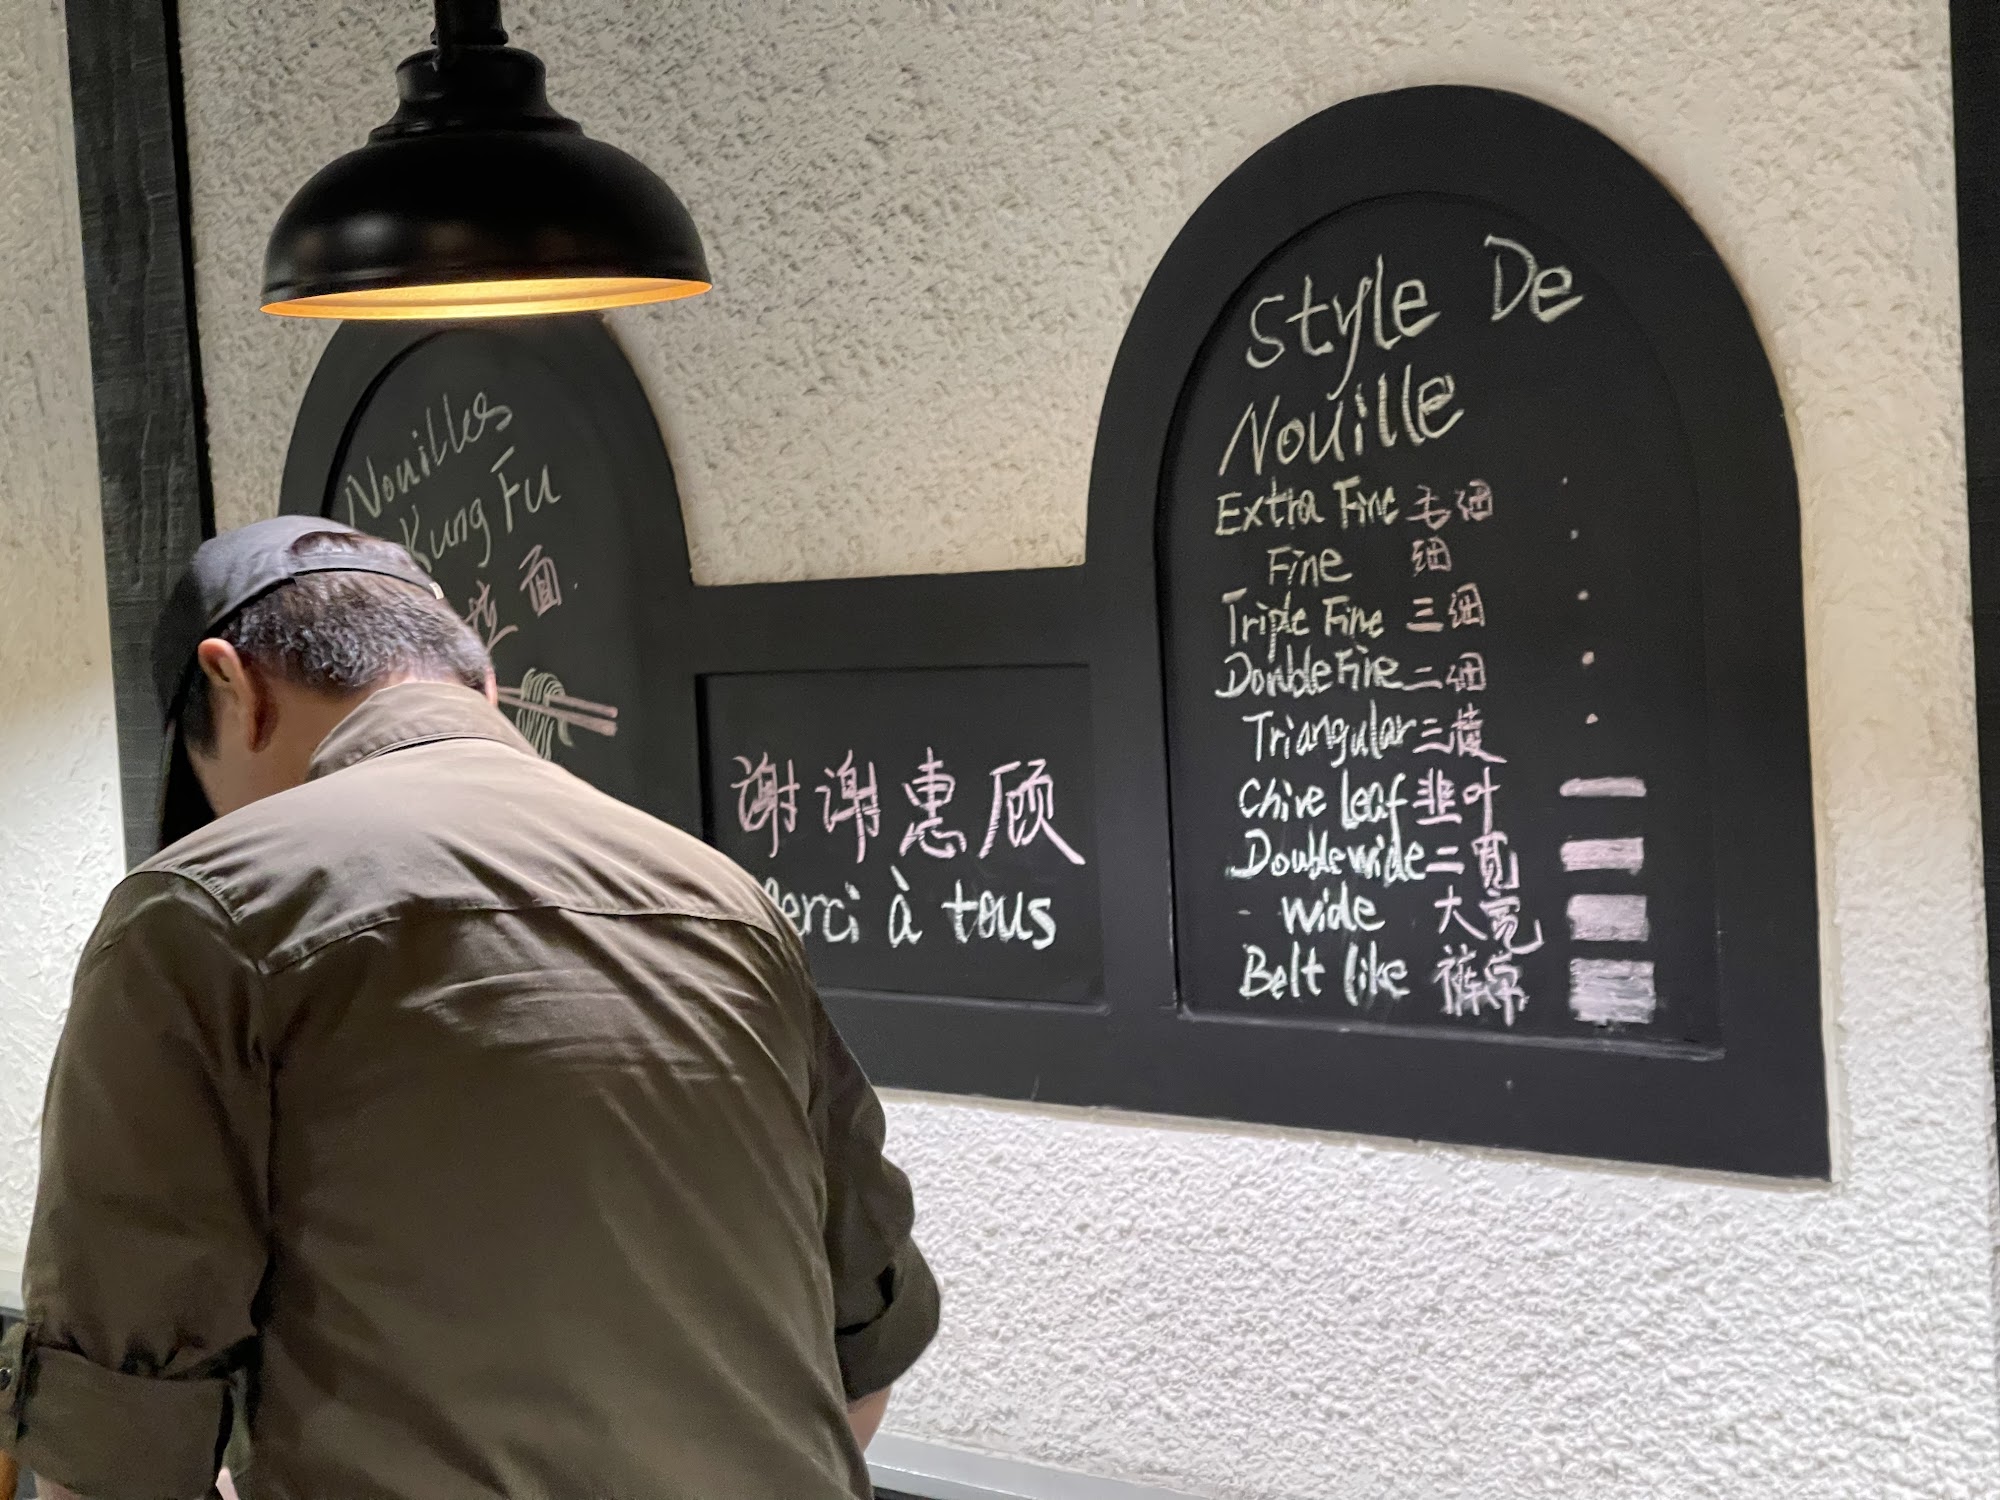 Nouilles
Kung Fu
拉面
谢谢惠顾
Merci à tous
Style De
Nouille
Extra Fine 毛细
Fine 细
Triple Fine 三细
Double Fine 二细
Triangular 三棱
Chive Leaf 韭叶
Doublewide 二宽
wide 大宽
Belt like 裤带